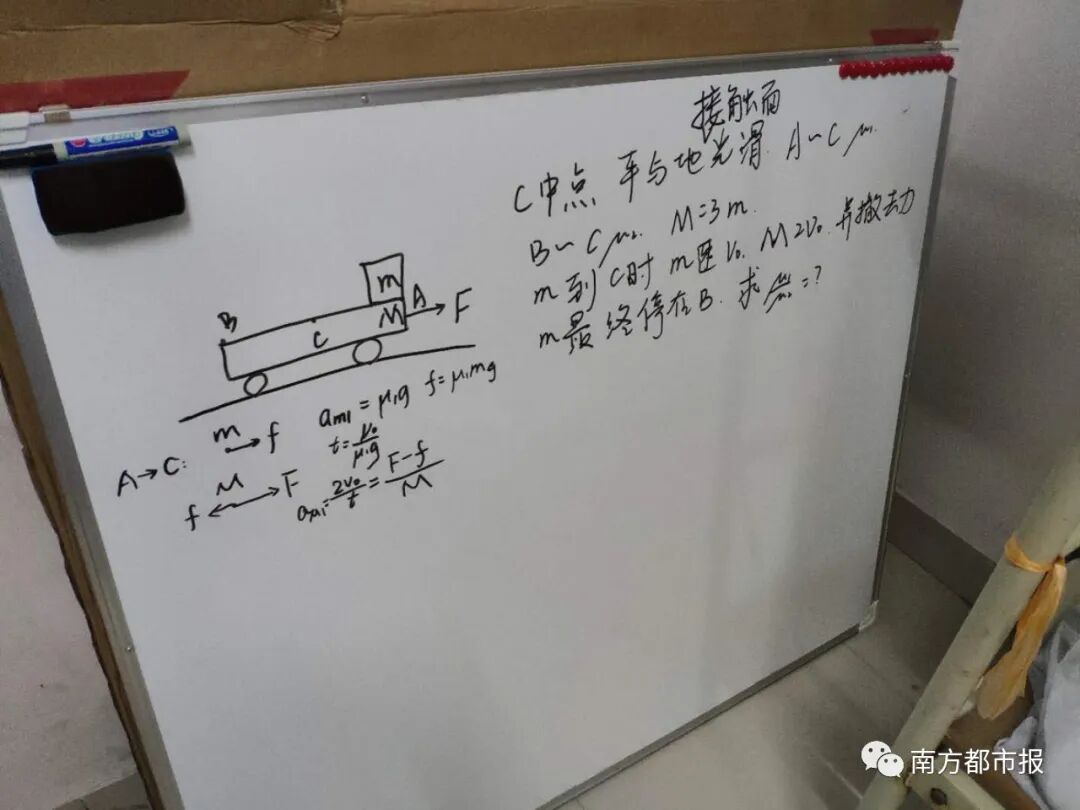 接触面
C中点 车与地光滑. A~C μ₁.
B~C μ₂. M=3m.
m到C时 m速V₀. M 2V₀. 并撤去力
m最终停在B. 求 μ₁/μ₂=?
m
B
C
M
A
F
A→C:
m
f
a_{m1}=μ₁g f=μ₁mg
t=V₀/μ₁g
f
M
F
a_{M1}=2V₀/t=F-f/M
南方都市报